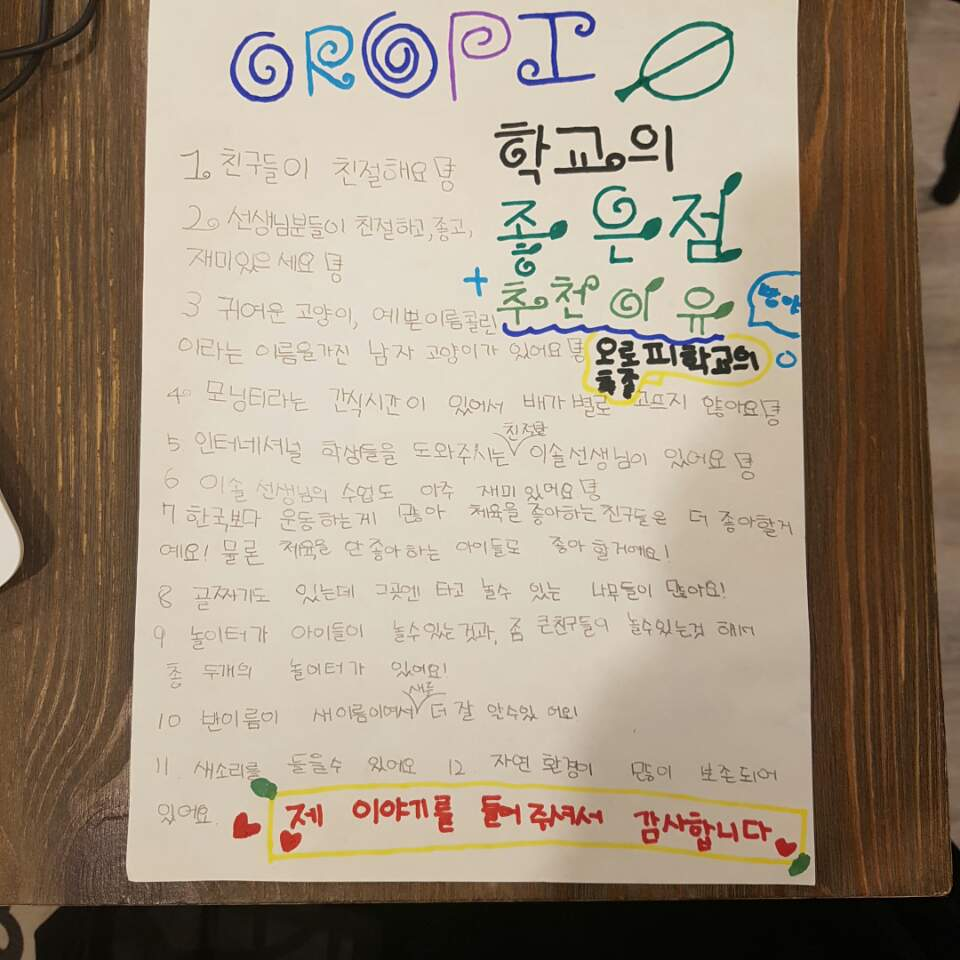 OROPI
학교의
좋은점
+ 추천이유
오로피학교의
특징
1. 친구들이 친절해요
2. 선생님분들이 친절하고, 좋고,
재미있은 세요
3 귀여운 고양이, 예쁜이름콜린
이라는 이름을가진 남자 고양이가 있어요
4. 모닝티라는 간식시간이 있어서 배가별로 고프지 않아요
5 인터네셔널 학생들을 도와주시는 친절한 이솔선생님이 있어요
6 이솔 선생님의 수업도 아주 재미있어요
7 한국보다 운동하는게 많아 체육을좋아하는친구들은 더 좋아할거
예요! 물론 체육을 안좋아하는 아이들도 좋아할거에요!
8 골짜기도 있는데 그곳엔 타고 놀수 있는 나무들이 많아요!
9 놀이터가 아이들이 놀수있는것과, 좀 큰친구들이 놀수있는것 해서
총 두개의 놀이터가 있어요!
10 반이름이 새이름이여서 새를 더 잘 알수있어요!
11 새소리를 들을수 있어요 12 자연환경이 많이 보존되어
있어요
제 이야기를 들어주셔서 감사합니다